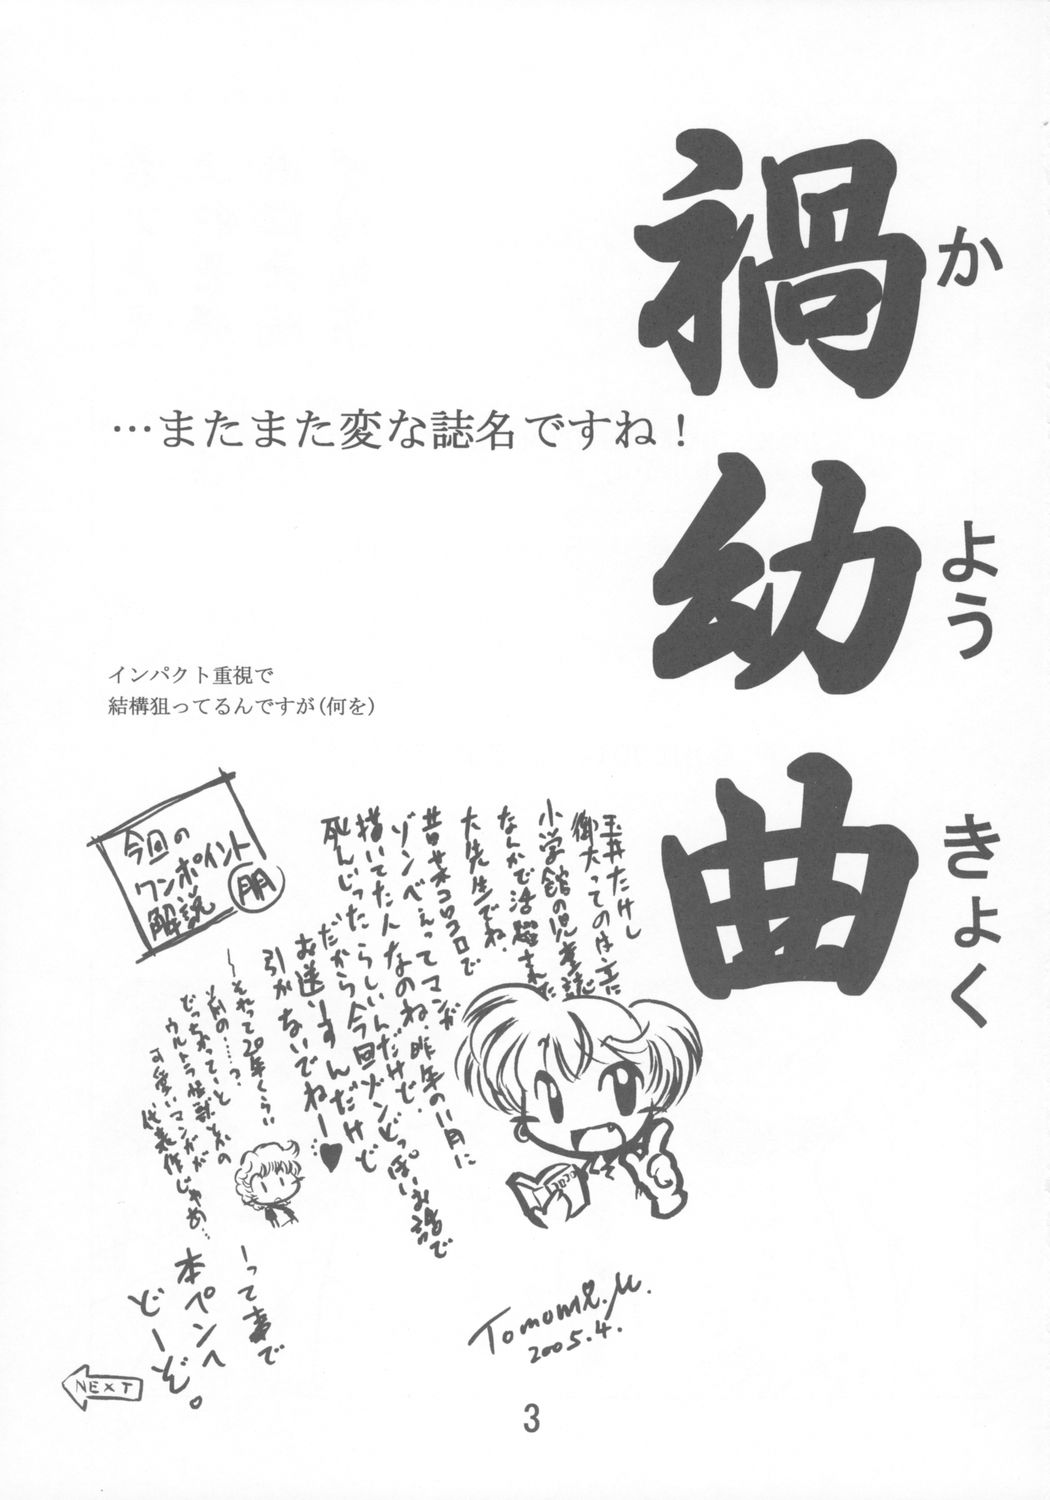 禍幼曲
か
よう
きょく
…またまた変な誌名ですね！
インパクト重視で
結構狙ってるんですが(何を)
今回の
ワンポイント
解説
朋
玉井たけし
御大ってのは主に
小学館の児童誌
なんかで活躍された
大先生でね、
昔さあコロコロで
ゾンベぇってマンガ
描いてた人なのね。昨年の11月に
死んじったらしいんだけど、
だから今回ゾンどっぽいお話で
お送りすんだけど
引かないでねー♥
〜それって20年くらい
前の……？
どっちかってーと
ウルトラ怪獣とかの
可愛いマンガが
代表作じゃあ…
コロコロ
ーって事で
本ペンへ
どーぞ。
Tomomi.M.
2005.4.
NEXT
3